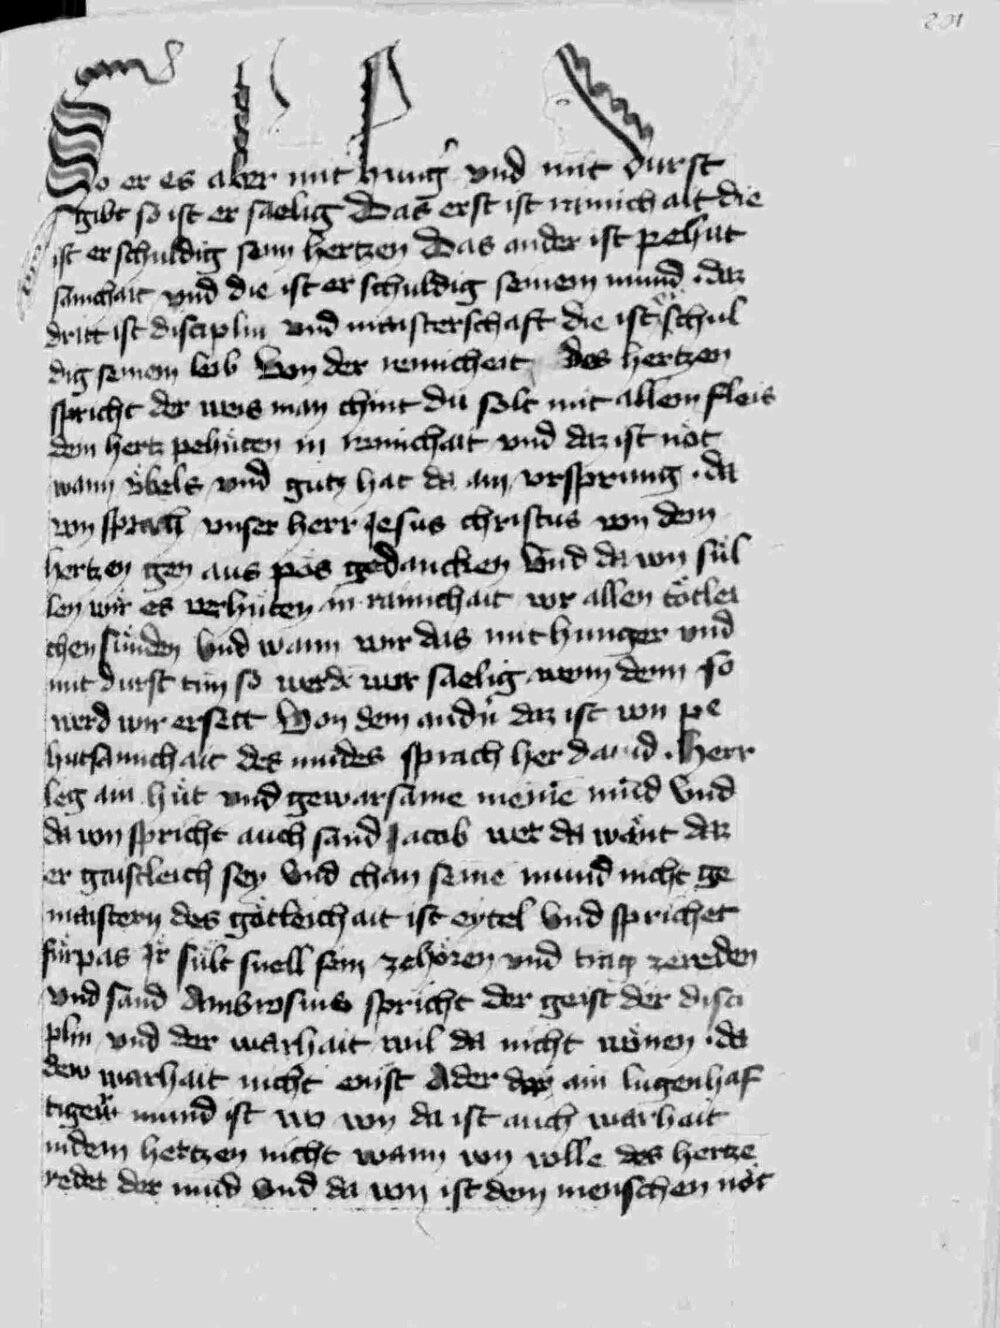 201
So er es aber mit hung̾ und mit durst
gibt so ist er saelig Das erst ist rainichait die
ist er schuldig seim hertzen Das ander ist pehut
samchait und die ist er schuldig seinem mund · daz
dritt ist disciplin und maisterschaft die ist er schul
dig seinem leib Von der rainicheit des hertzen
spricht der weis man chint du solt mit allem fleis
dein hertz pehüten in rainichait und daz ist nöt
wann übels und gutz hat da ain ursprung · da
von sprach unser herr Jesus christus von dem
hertzen gen aus pös gedancken Und da von sül
len wir es verhüten in rainichait vor allen tötlei
chen sünden Und wann wir das mit hunger und
mit durst tun so werdē wir saelig wenn denn so
werd wir ersett Von dem and̾n daz ist von pe
hutsamichait des mundes sprach her david · Herr
leg ain hüt und gewarsame meinē mūd Und
da von spricht auch sand Jacob wer da wänt daz
er gaistleich sey Und chan seinē mund nicht ge
maistern des götleichait ist eytel Und sprichet
fürpas Ir sült snell sein zehören und träg zereden
Und sand Ambrosius spricht der geist der disci
plin und der warhait wil da nicht wonen · da
dew warhait nicht enist Ader der ain lugenhaf
tigew mund ist wo von da ist auch warhait
indem hertzen nicht wann von volle des hertzē
redet der mūd Und da von ist dem menschen nöt